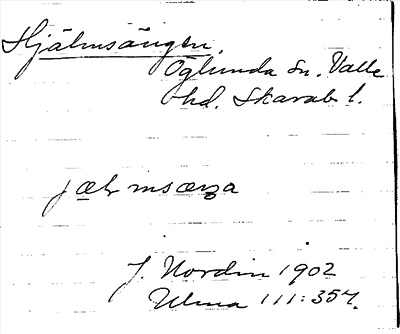 Hjälmsängen,
Öglunda sn. Valle
hd. Skarab. l.
jælmsæŋa
J. Nordin 1902
Ulma 111:357.